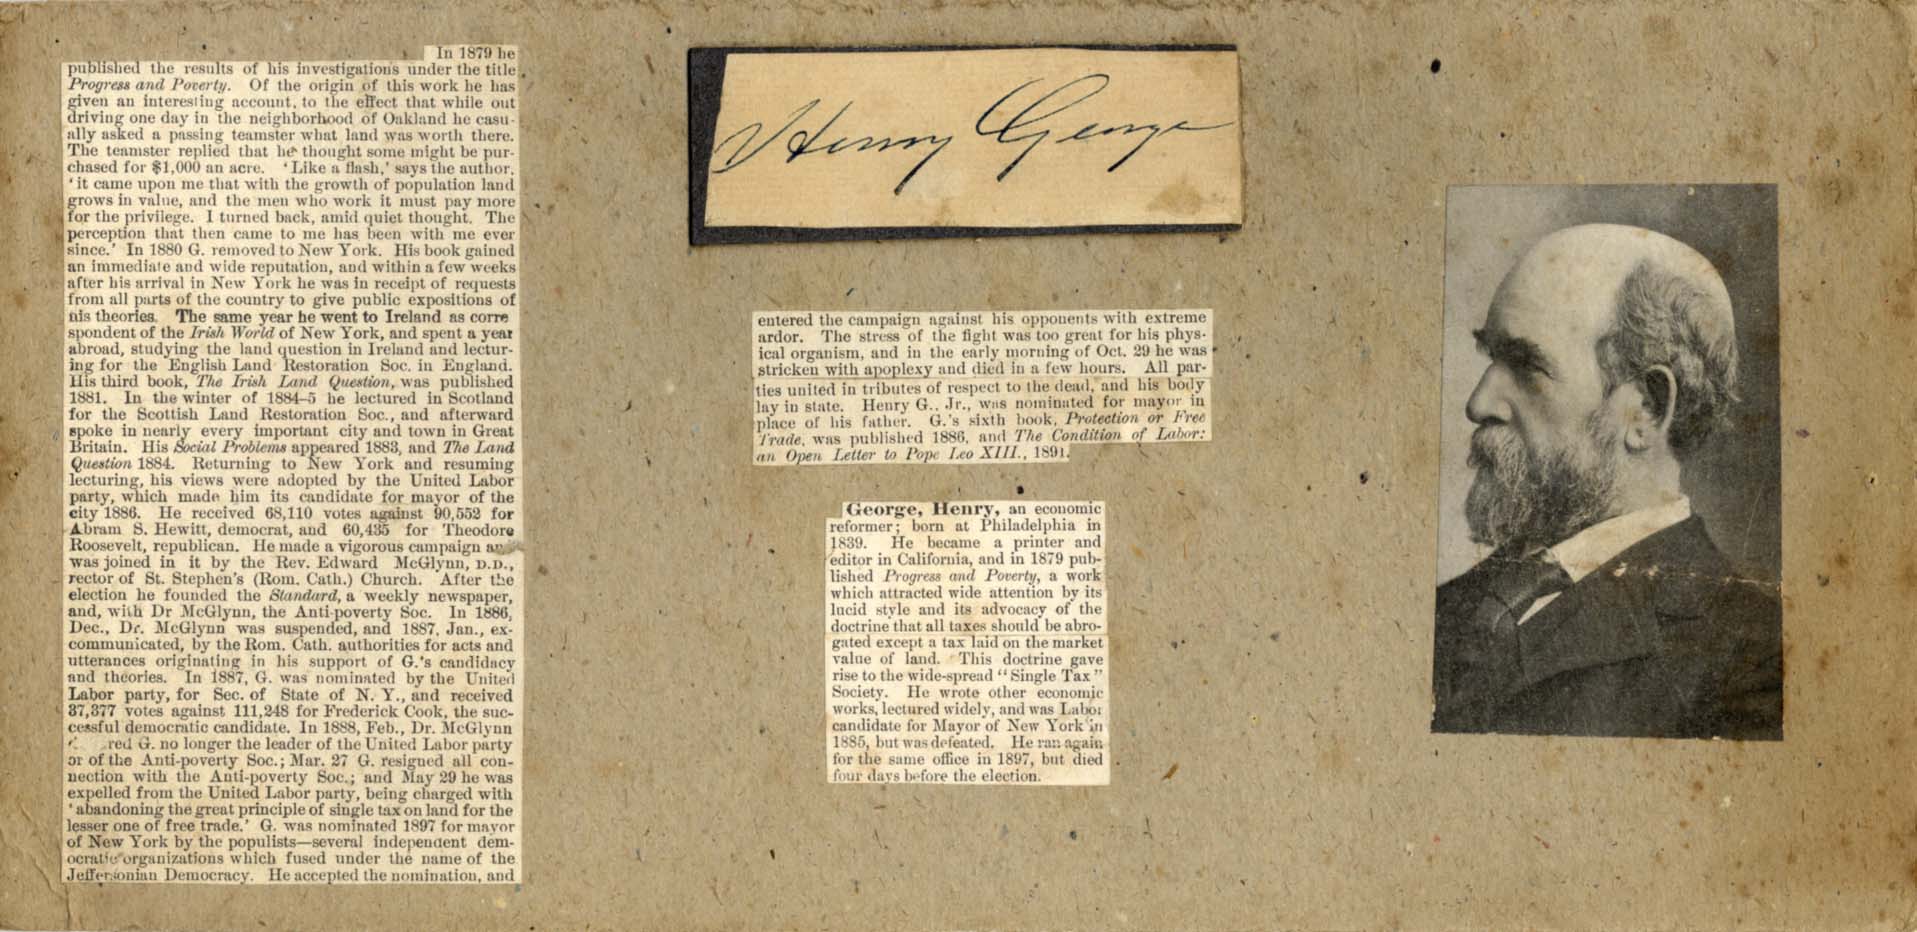 In 1879 he
published the results of his investigations under the title
Progress and Poverty. Of the origin of this work he has
given an interesting account, to the effect that while out
driving one day in the neighborhood of Oakland he casu-
ally asked a passing teamster what land was worth there.
The teamster replied that he thought some might be pur-
chased for $1,000 an acre. 'Like a flash,' says the author,
'it came upon me that with the growth of population land
grows in value, and the men who work it must pay more
for the privilege. I turned back, amid quiet thought. The
perception that then came to me has been with me ever
since.' In 1880 G. removed to New York. His book gained
an immediate and wide reputation, and within a few weeks
after his arrival in New York he was in receipt of requests
from all parts of the country to give public expositions of
his theories. The same year he went to Ireland as corre
spondent of the Irish World of New York, and spent a year
abroad, studying the land question in Ireland and lectur-
ing for the English Land Restoration Soc. in England.
His third book, The Irish Land Question, was published
1881. In the winter of 1884–5 he lectured in Scotland
for the Scottish Land Restoration Soc., and afterward
spoke in nearly every important city and town in Great
Britain. His Social Problems appeared 1883, and The Land
Question 1884. Returning to New York and resuming
lecturing, his views were adopted by the United Labor
party, which made him its candidate for mayor of the
city 1886. He received 68,110 votes against 90,552 for
Abram S. Hewitt, democrat, and 60,435 for Theodore
Roosevelt, republican. He made a vigorous campaign
was joined in it by the Rev. Edward McGlynn, D.D.,
rector of St. Stephen's (Rom. Cath.) Church. After the
election he founded the Standard, a weekly newspaper,
and, with Dr McGlynn, the Anti-poverty Soc. In 1886,
Dec., Dr. McGlynn was suspended, and 1887, Jan., ex-
communicated, by the Rom. Cath. authorities for acts and
utterances originating in his support of G.'s candidacy
and theories. In 1887, G. was nominated by the United
Labor party, for Sec. of State of N. Y., and received
37,377 votes against 111,248 for Frederick Cook, the suc-
cessful democratic candidate. In 1888, Feb., Dr. McGlynn
G. no longer the leader of the United Labor party
or of the Anti-poverty Soc.; Mar. 27 G. resigned all con-
nection with the Anti-poverty Soc.; and May 29 he was
expelled from the United Labor party, being charged with
'abandoning the great principle of single tax on land for the
lesser one of free trade.' G. was nominated 1897 for mayor
of New York by the populists—several independent dem-
ocratic organizations which fused under the name of the
Jeffersonian Democracy. He accepted the nomination, and
Henry George
entered the campaign against his opponents with extreme
ardor. The stress of the fight was too great for his phys-
ical organism, and in the early morning of Oct. 29 he was
stricken with apoplexy and died in a few hours. All par-
ties united in tributes of respect to the dead, and his body
lay in state. Henry G., Jr., was nominated for mayor in
place of his father. G.'s sixth book, Protection or Free
Trade, was published 1886, and The Condition of Labor:
an Open Letter to Pope Leo XIII., 1891.
George, Henry, an economic
reformer; born at Philadelphia in
1839. He became a printer and
editor in California, and in 1879 pub-
lished Progress and Poverty, a work
which attracted wide attention by its
lucid style and its advocacy of the
doctrine that all taxes should be abro-
gated except a tax laid on the market
value of land. This doctrine gave
rise to the wide-spread "Single Tax"
Society. He wrote other economic
works, lectured widely, and was Labor
candidate for Mayor of New York in
1885, but was defeated. He ran again
for the same office in 1897, but died
four days before the election.